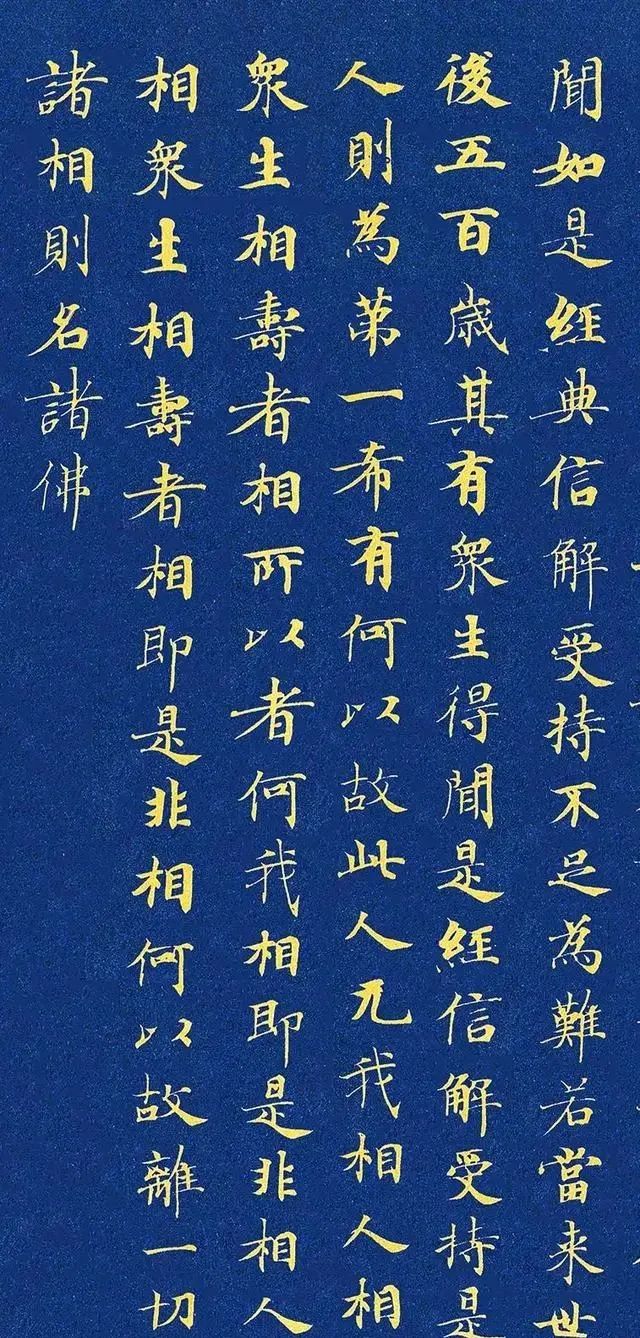 聞如是經典信解受持不足為難若當来世
後五百歲其有衆生得聞是經信解受持是
人則為苐一希有何以故此人无我相人相
衆生相壽者相所以者何我相即是非相人
相衆生相壽者相即是非相何以故離一切
諸相則名諸佛